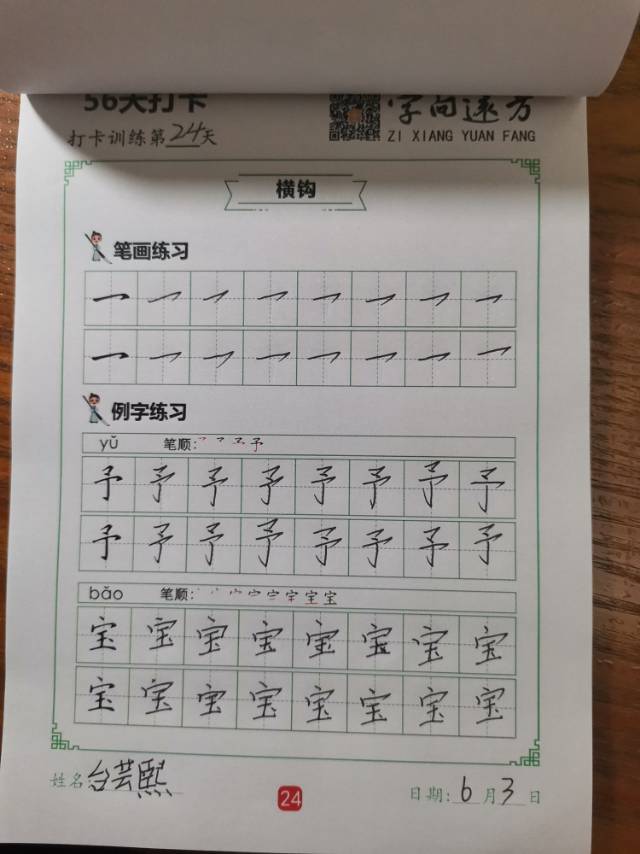 56天打卡
字向远方
打卡训练第24天
ZI XIANG YUAN FANG
横钩
笔画练习
例字练习
yǔ 笔顺:
予 予 予 予 予 予 予 予
予 予 予 予 予 予 予 予
bǎo 笔顺:
宝 宝 宝 宝 宝 宝 宝 宝
宝 宝 宝 宝 宝 宝 宝 宝
姓名 台芸熙
24
日期: 6 月 3 日